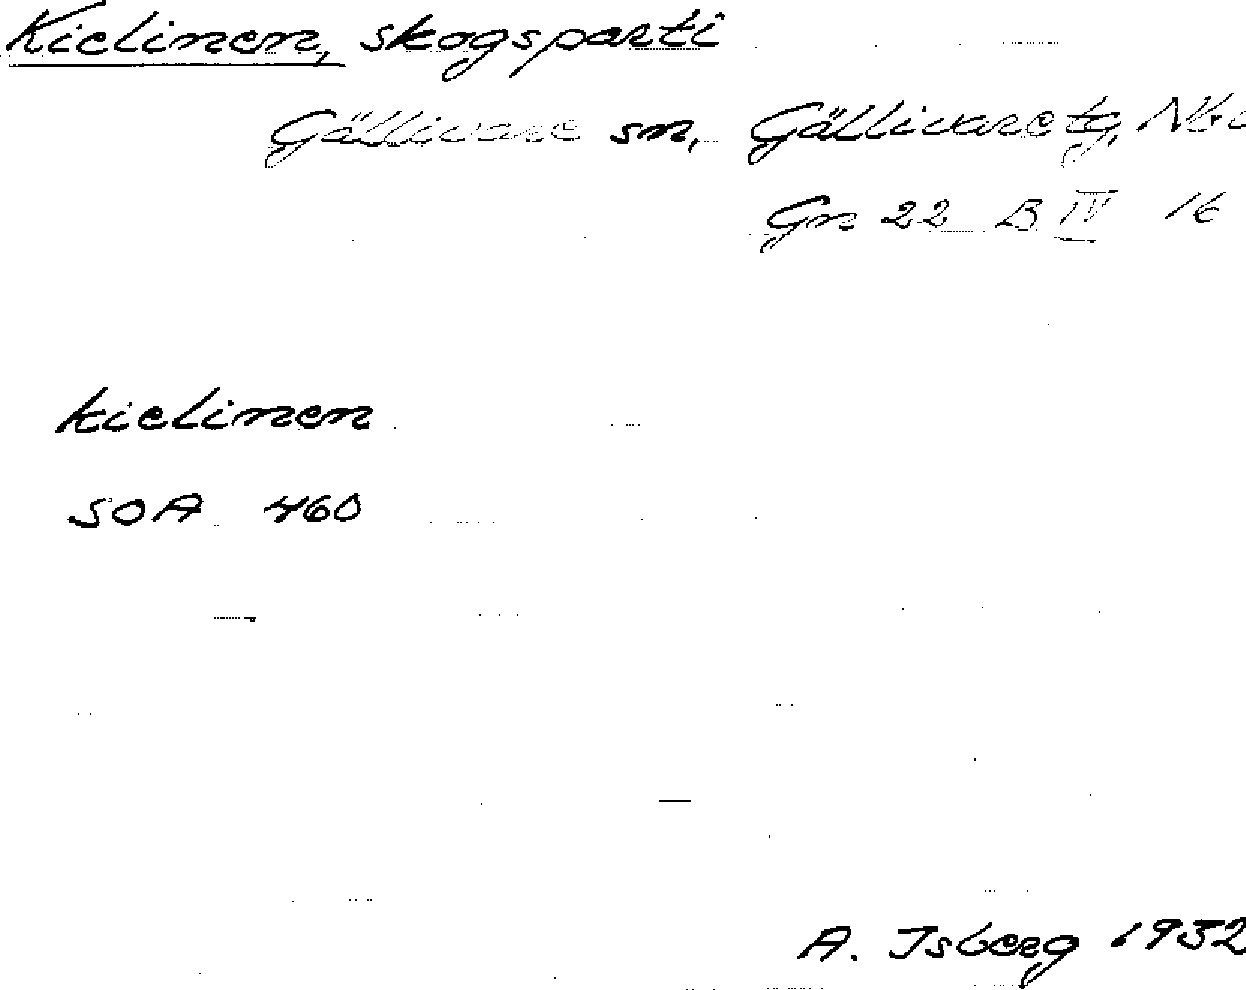 Kielinen, skogsparti
Gällivare sn, Gällivare tg, Nb
Gn 22 B IV 16
kielinen
SOA 460
A. Isberg 1932